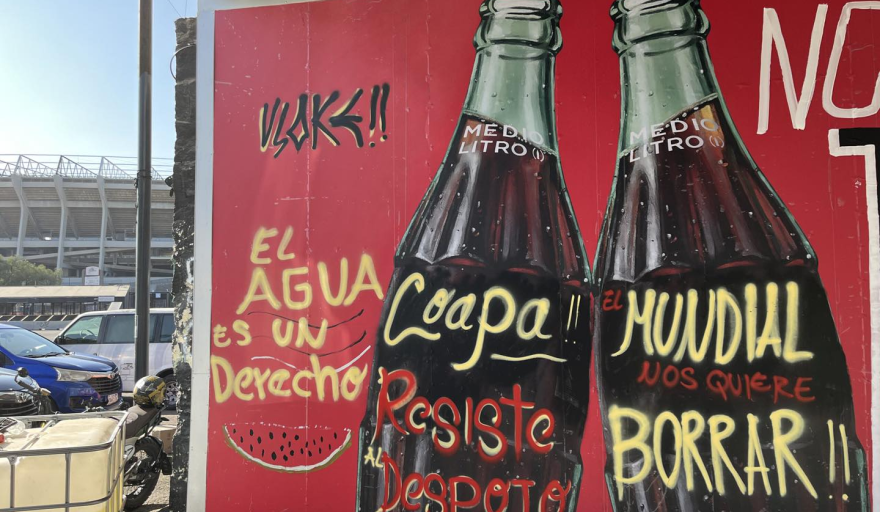 VLOKE!!
NO
T
MEDIO
LITRO (1)
MEDIO
LITRO (1)
EL
AGUA
ES UN
DERECHO
Coapa!!
Resiste
AL
DESPOJO
EL
MUNDIAL
NOS QUIERE
BORRAR!!